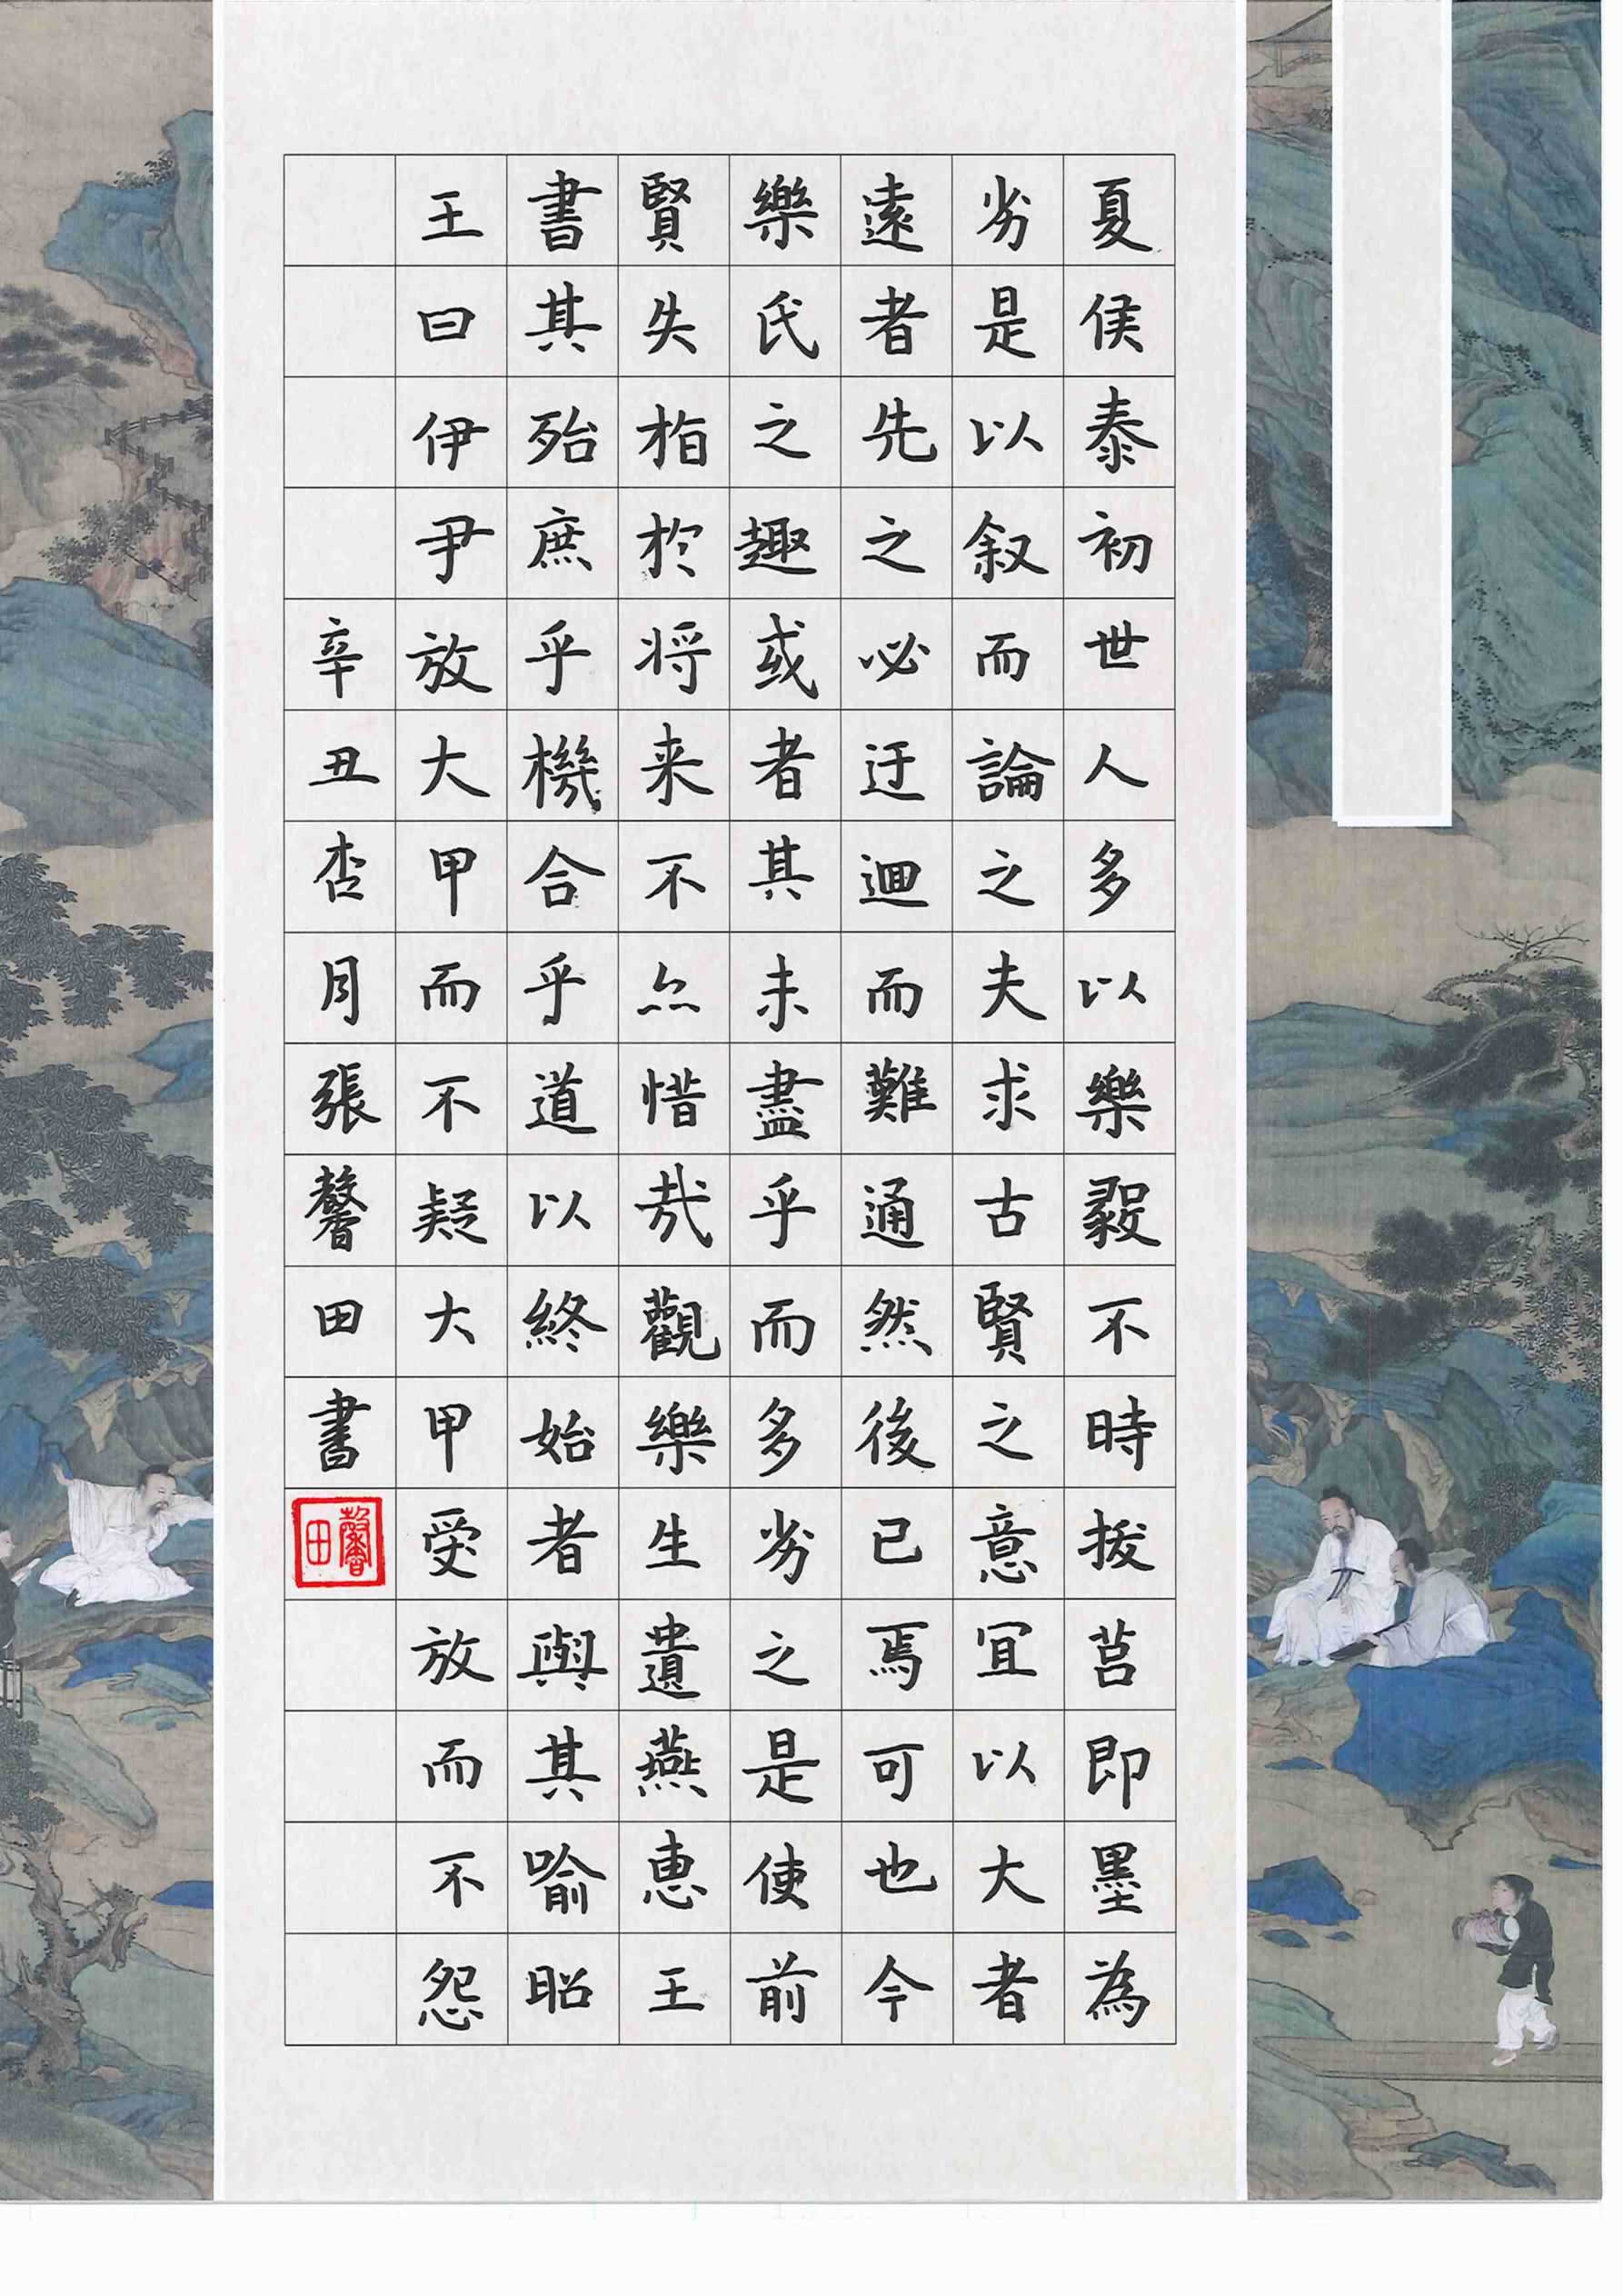 夏侯泰初世人多以樂毅不時拔莒即墨為
劣是以叙而論之夫求古賢之意宜以大者
遠者先之必迂迴而難通然後已焉可也今
樂氏之趣或者其未盡乎而多劣之是使前
賢失指於将来不亦惜哉觀樂生遺燕惠王
書其殆庶乎機合乎道以終始者與其喻昭
王曰伊尹放大甲而不疑大甲受放而不怨
辛丑杏月張馨田書
馨田